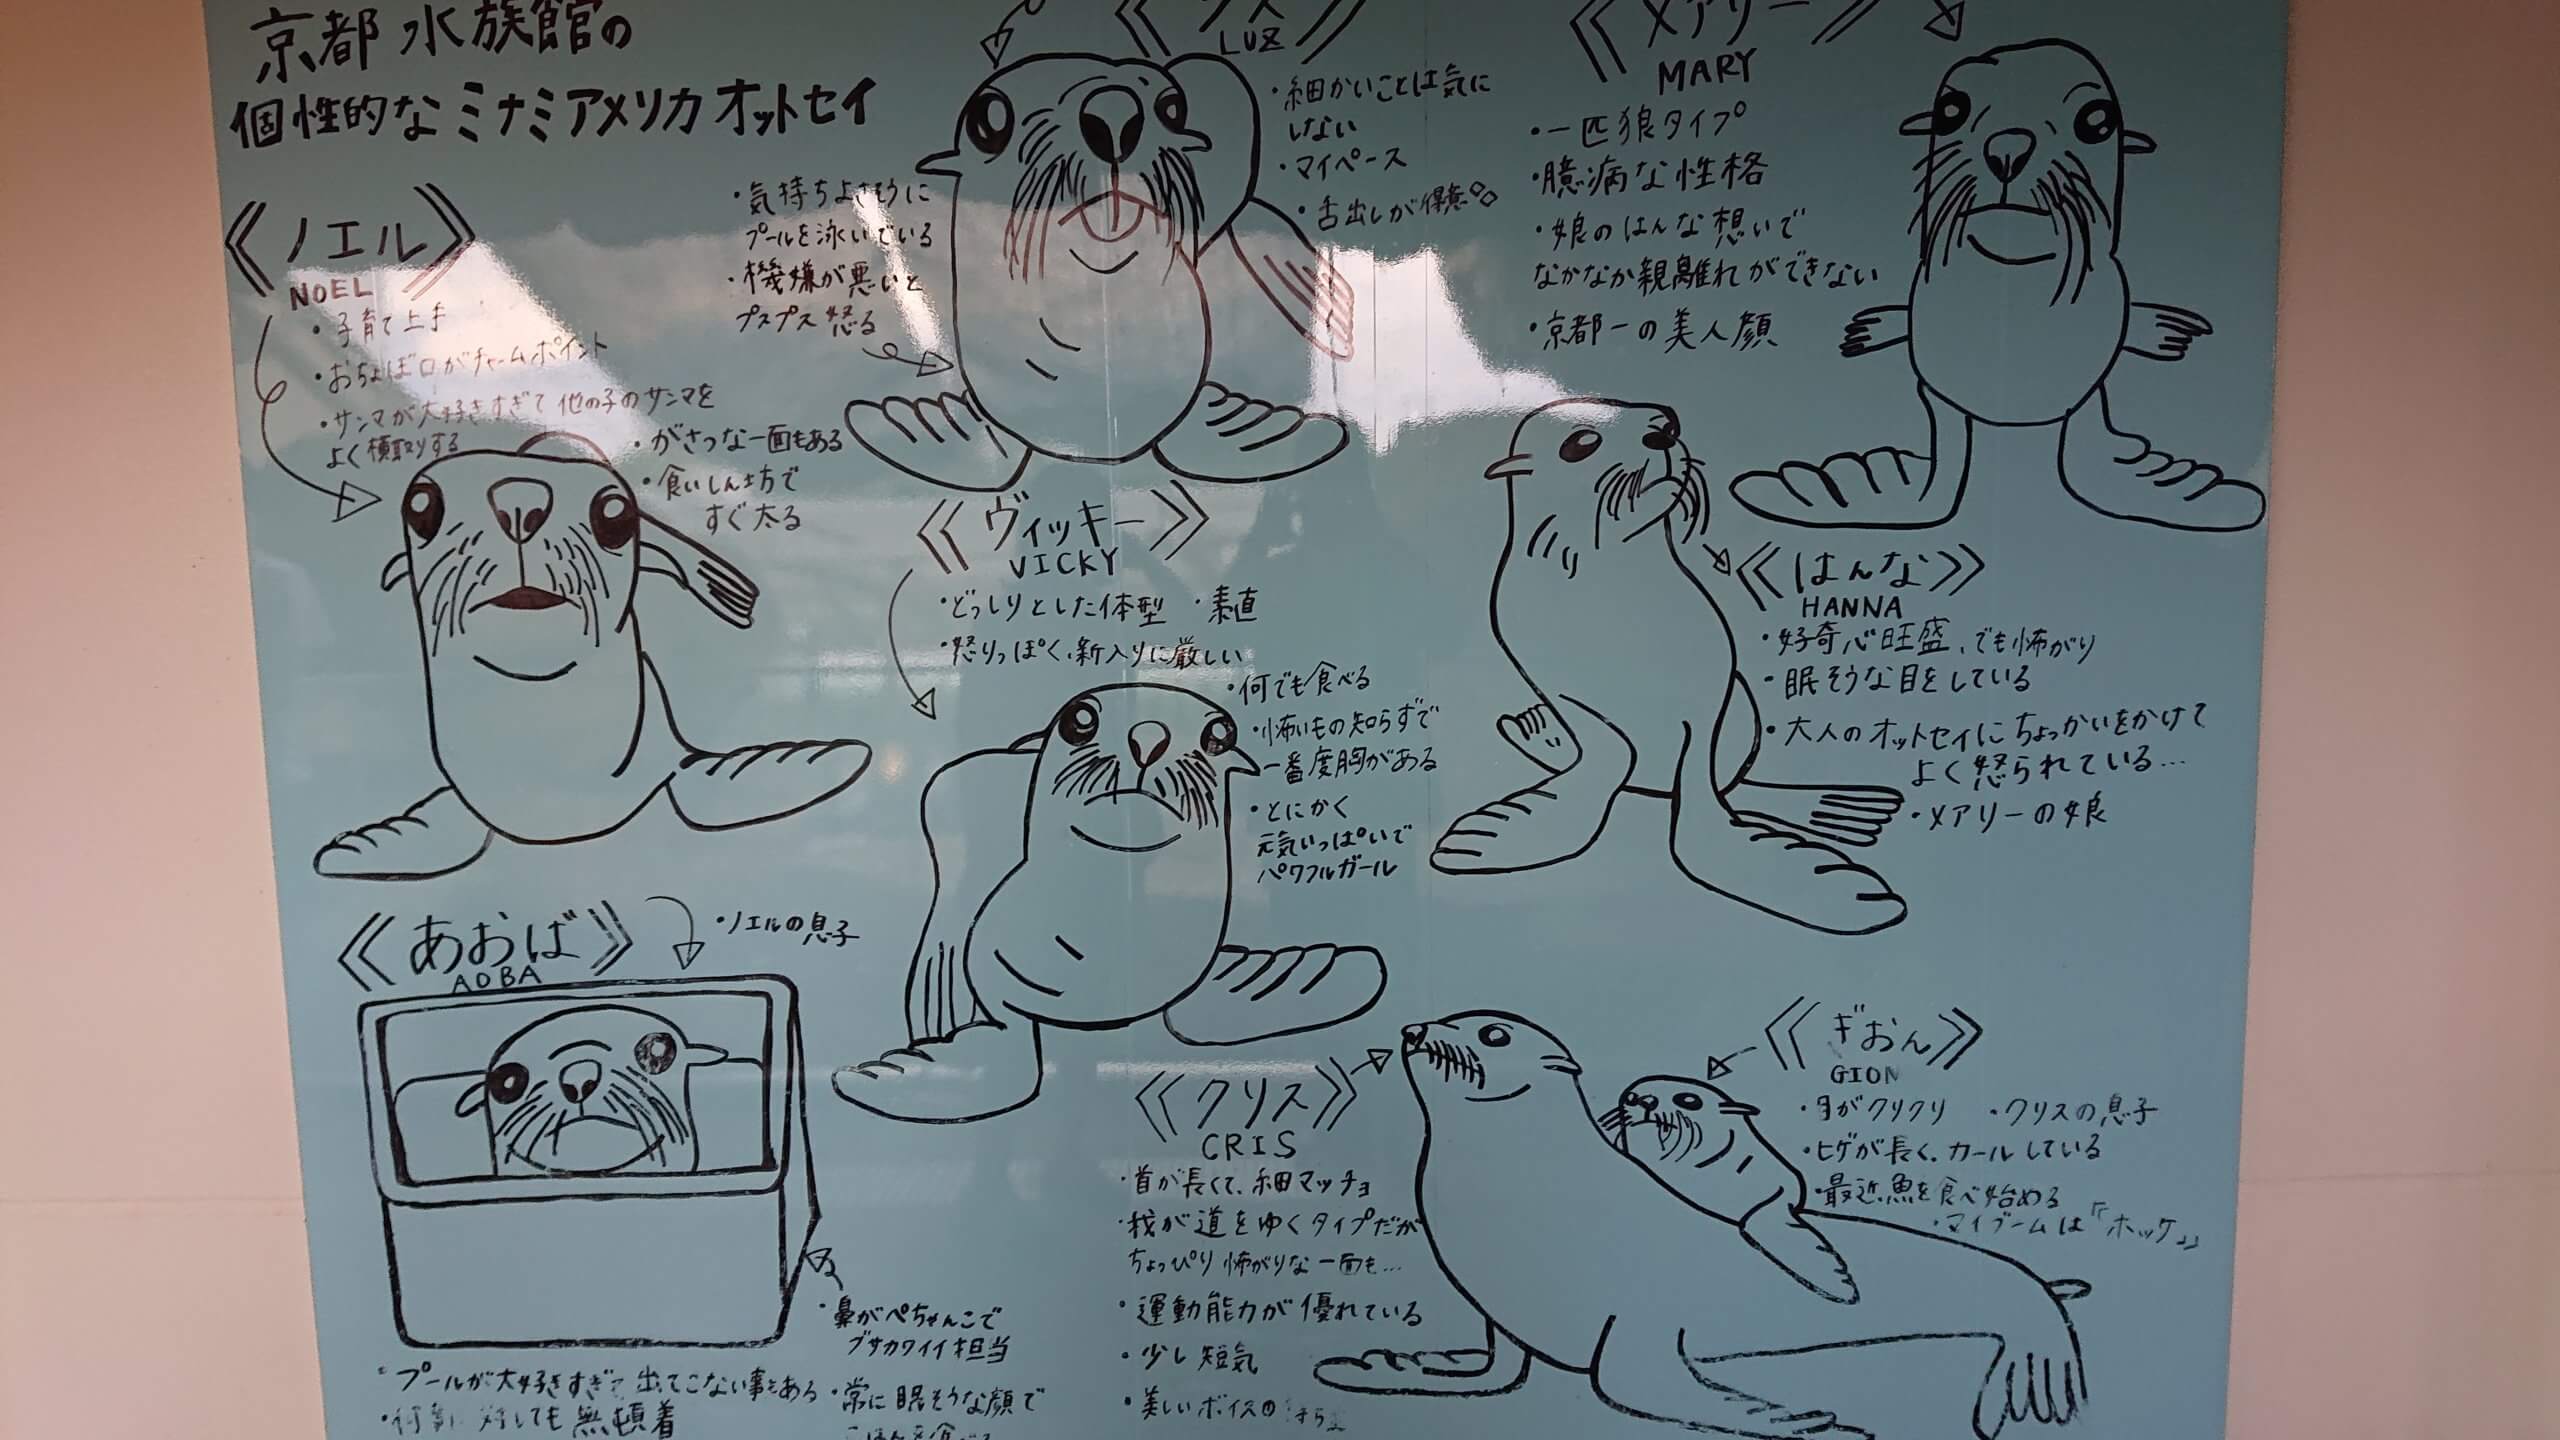 京都水族館の
個性的なミナミアメリカオットセイ
《ノエル》
NOEL
・子育て上手
・おちょぼ口がチャームポイント
・サンマが大好きすぎて他の子のサンマを
よく横取りする
・がさつな一面もある
・食いしん坊で
すぐ太る
LUZ
・細かいことは気に
しない
・マイペース
・舌出しが得意
・気持ちよさそうに
プールを泳いでいる
・機嫌が悪いと
プスプス怒る
《メアリー》
MARY
・一匹狼タイプ
・臆病な性格
・娘のはんな想いで
なかなか親離れができない
・京都一の美人顔
《ヴィッキー》
VICKY
・どっしりとした体型 ・素直
・怒りっぽく、新入りに厳しい
・何でも食べる
・怖いもの知らずで
一番度胸がある
・とにかく
元気いっぱいで
パワフルガール
《はんな》
HANNA
・好奇心旺盛、でも怖がり
・眠そうな目をしている
・大人のオットセイにちょっかいをかけて
よく怒られている…
・メアリーの娘
《あおば》
AOBA
・ノエルの息子
・鼻がぺちゃんこで
ブサカワイイ担当
・プールが大好きすぎて出てこない事もある
・何事に対しても無頓着
・常に眠そうな顔で
《クリス》
CRIS
・首が長くて、細マッチョ
・我が道をゆくタイプだが
ちょっぴり怖がりな一面も…
・運動能力が優れている
・少し短気
・美しいボイスの
《ぎおん》
GION
・目がクリクリ ・クリスの息子
・ヒゲが長く、カールしている
・最近魚を食べ始める
・マイブームは「ホッケ」